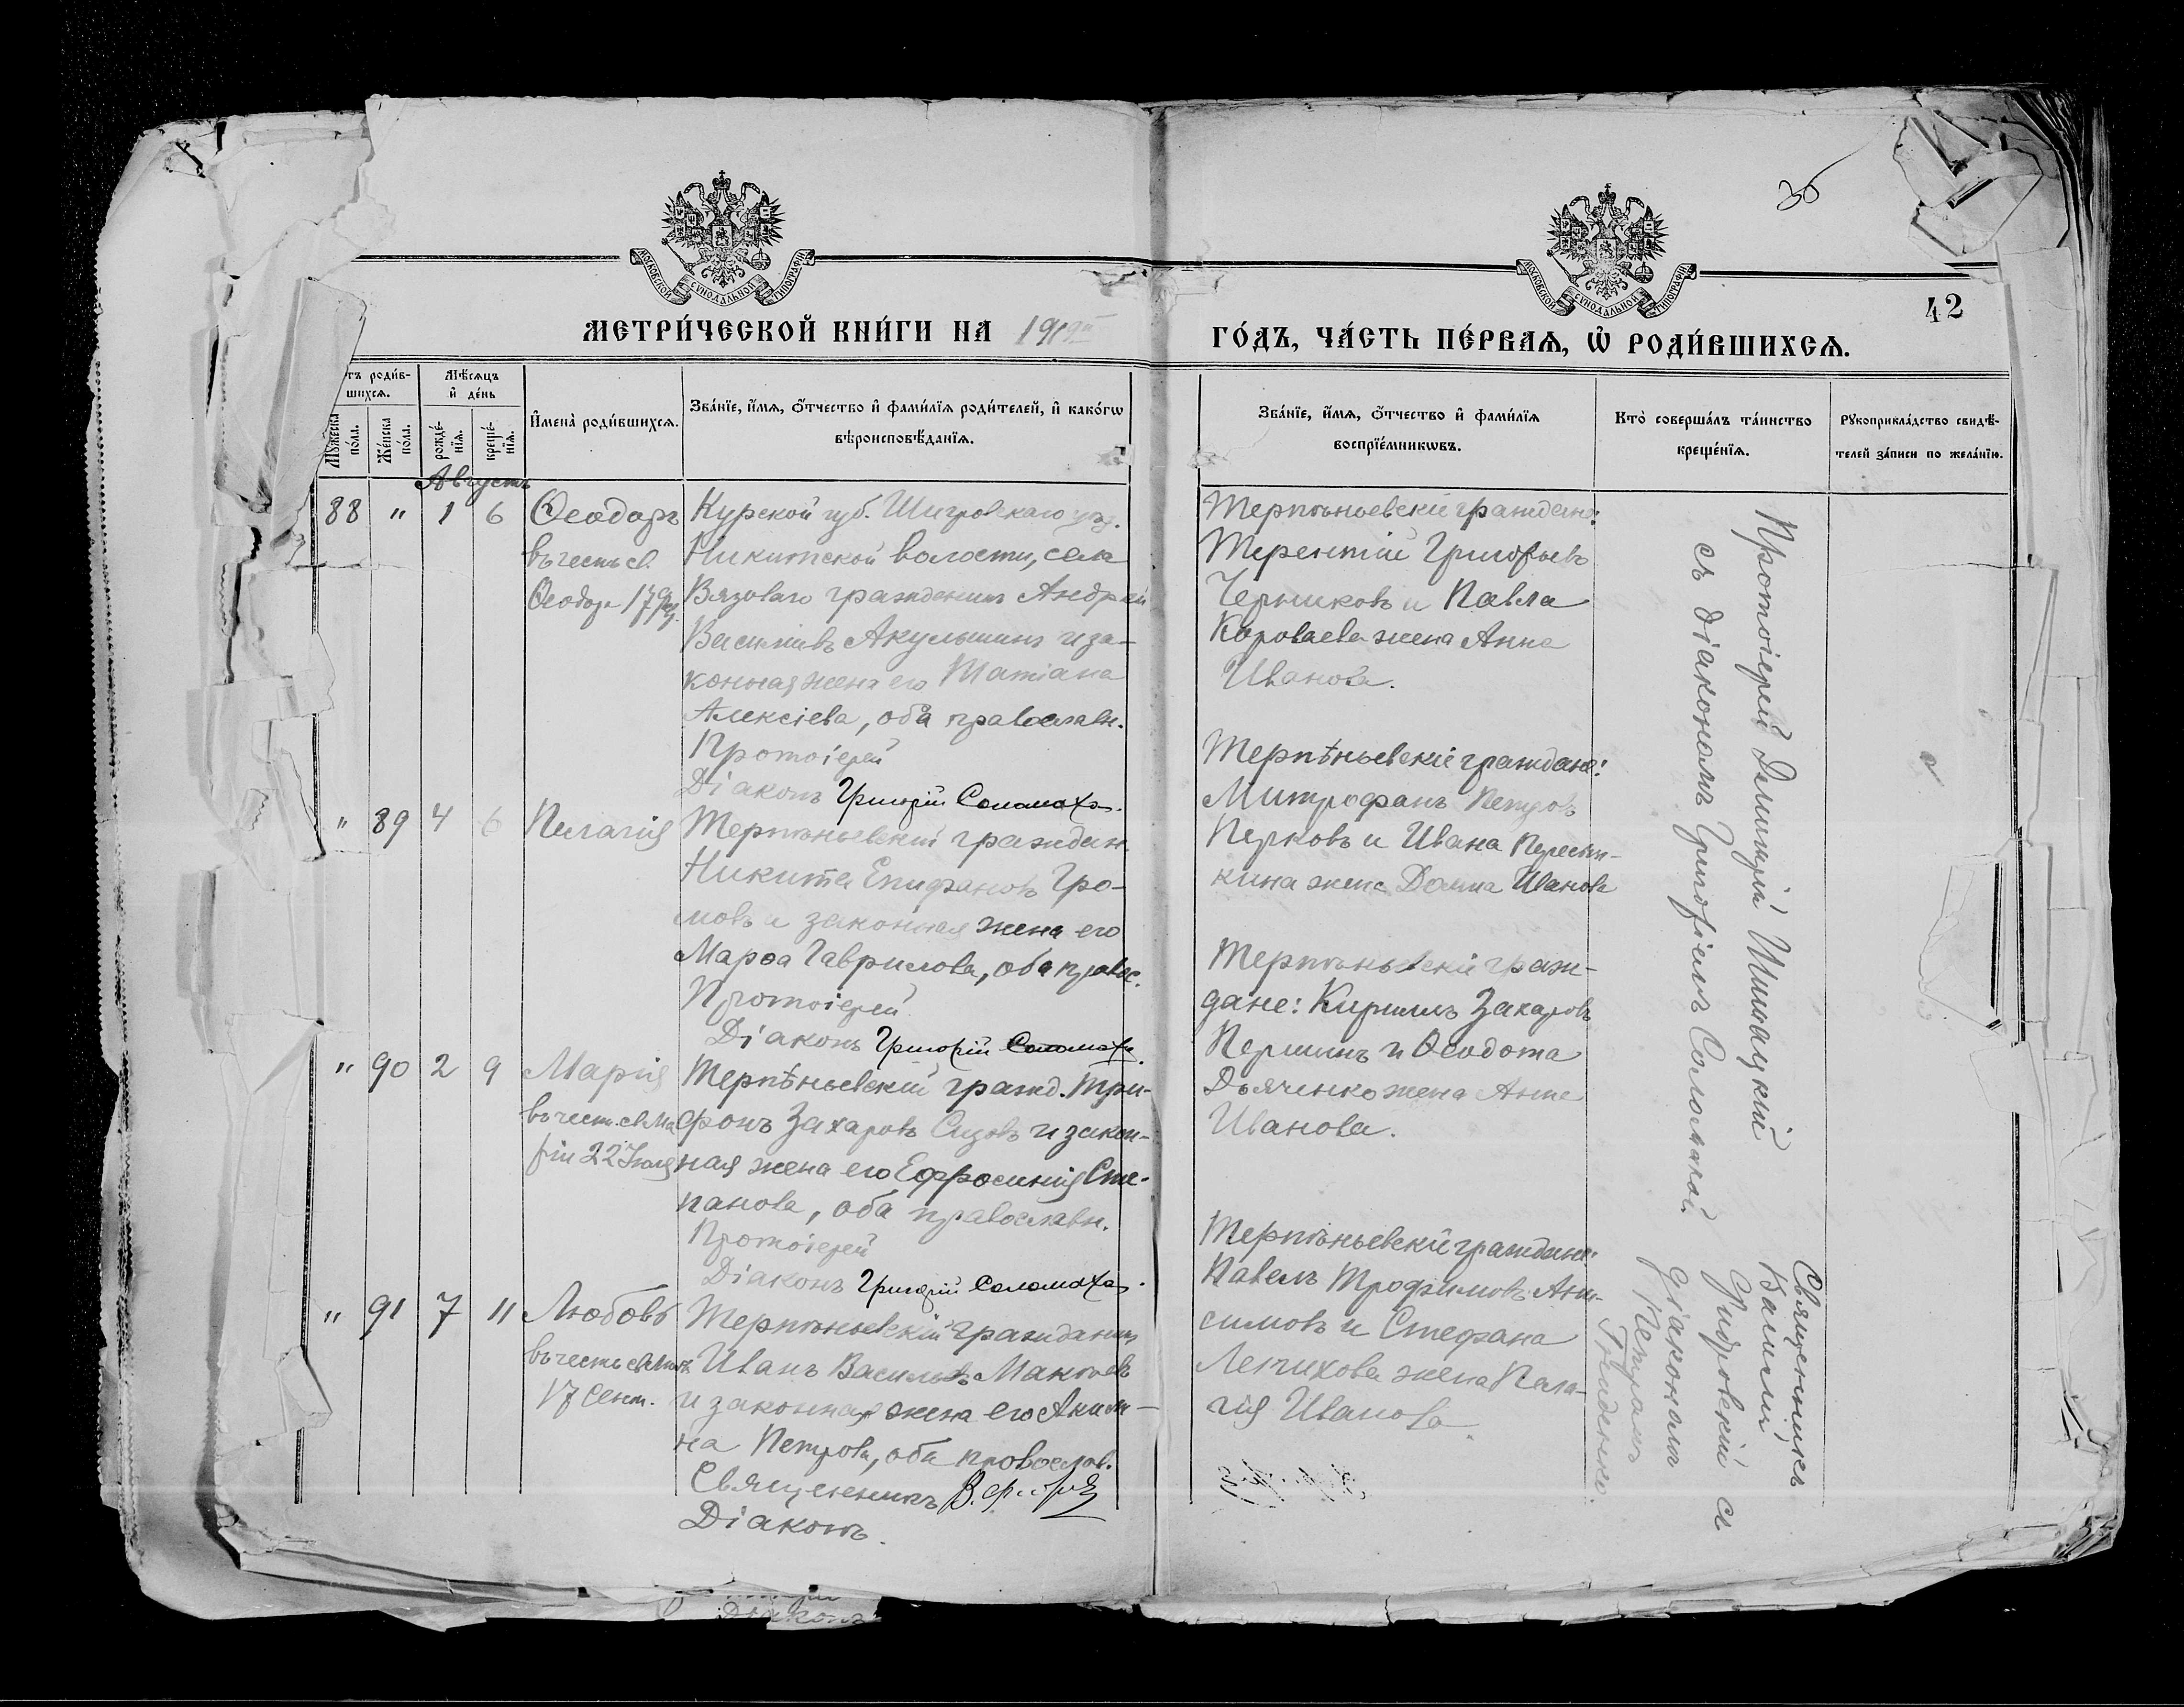 36
42
МОСКОВСКОЙ СѴНОДАЛЬНОЙ ТИПОГРАФІИ
МОСКОВСКОЙ СѴНОДАЛЬНОЙ ТИПОГРАФІИ
МЕТРИ́ЧЕСКОЙ КНИ́ГИ НА 1919й
ГО́ДЪ, ЧА́СТЬ ПЕ́РВАѦ, Ѡ҆ РОДИ́ВШИХСѦ.
роди́в-
шихсѧ.
Мꙋ́жеска по́ла.
Же́нска по́ла.
Мѣ́сѧцъ
и҆ де́нь
рожде́-
нїѧ.
креще́-
нїѧ.
И҆мена̀ роди́вшихсѧ.
Зва́нїе, и҆́мѧ, ѻ҆́тчество и҆ фами́лїѧ роди́телей, и҆ како́гѡ
вѣроисповѣ́данїѧ.
Зва́нїе, и҆́мѧ, ѻ҆́тчество и҆ фами́лїѧ
воспрїе́мникѡвъ.
Кто̀ соверша́лъ та́инство
креще́нїѧ.
Рꙋкоприкла́дство свидѣ́-
телей за́писи по жела́нїю.
Августъ
88 " 1 6 Ѳеодоръ
въ честь св.
Ѳеодора 17
Курской губ. Щигровскаго уѣз.
Никитской волости, села
Вязоваго гражданинъ Андрей
Василіевъ Акульшинъ и за-
конная жена его Татіана
Алексіева, оба православн.
Протоіерей
Діаконъ Григорій Соломаха.
Терпѣньевскіе граждане:
Терентій Григорьевъ
Черниковъ и Павла
Короваева жена Анна
Иванова.
" 89 4 6 Пелагія
Терпѣньевскій граждан.
Никита Епифановъ Гро-
мовъ и законная жена его
Марѳа Гаврилова, оба правос.
Протоіерей
Діаконъ Григорій Соломаха.
Терпѣньевскіе граждане:
Митрофанъ Петровъ
и Ивана
кина жена Домна Иванова
" 90 2 9 Марія
въ честь св. Ма
ріи 22 Іюля
Терпѣньевскій гражд. Три-
фонъ Захаровъ Сизовъ и закон-
ная жена его Ефросинія Сте-
панова, оба православн.
Протоіерей
Діаконъ Григорій Соломаха.
Терпѣньевскіе граж-
дане: Кириллъ Захаровъ
Першинъ и Ѳеодота
Дьяченко жена Анна
Иванова.
" 91 7 11 Любовь
въ честь св.
17 Сент.
Терпѣньевскій гражданинъ
Иванъ Васильевъ
и законная жена его Акили-
на Петрова, оба православ.
Священникъ
Діаконъ.
Терпѣньевскіе граждане:
Павелъ Трофимовъ Ани-
симовъ и Стефана
Лепихова жена Пела-
гія Иванова.
Протоіерей Димитрій
съ діакономъ Григоріемъ Соломахой.
Священникъ
Василій
съ
діакономъ
Петромъ
Діаконъ